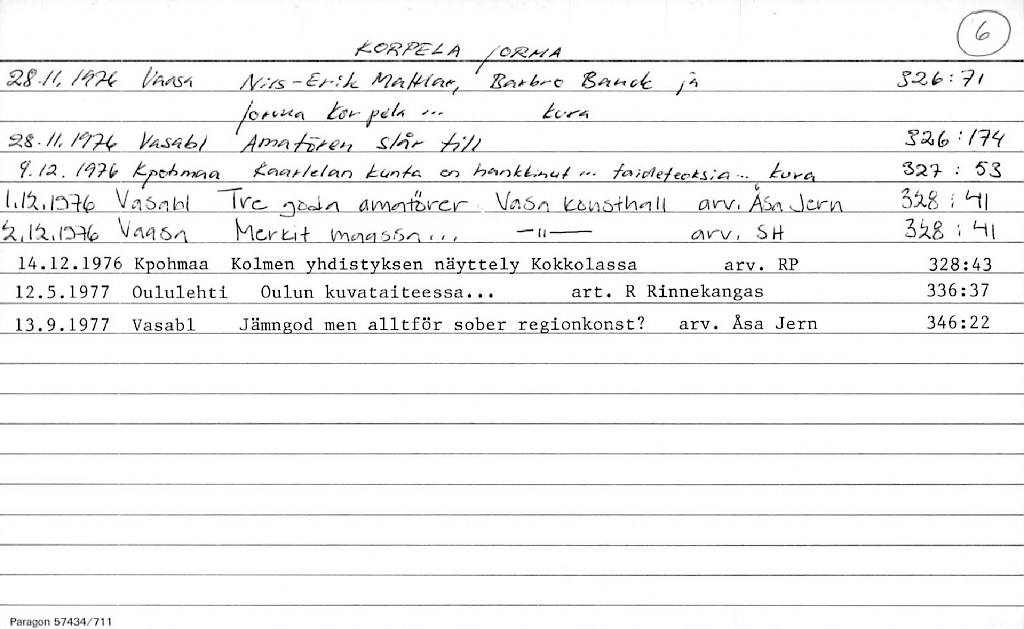 6
KORPELA JORMA
28.11.1976 Vaasa Nils-Erik Mattlar, Barbro Banck ja 326:71
Jorma Korpela ... kuva
28.11.1976 Vasabl Amatören slår till 326:174
9.12.1976 Kpohmaa Kaarlelan kunta on hankkinut ... taideteoksia ... kuva 327:53
1.12.1976 Vasabl Tre goda amatörer Vasa konsthall arv. Åsa Jern 328:41
2.12.1976 Vaasa Merkit maassa... —"— arv. SH 328:41
14.12.1976 Kpohmaa Kolmen yhdistyksen näyttely Kokkolassa arv. RP 328:43
12.5.1977 Oululehti Oulun kuvataiteessa... art. R Rinnekangas 336:37
13.9.1977 Vasabl Jämngod men alltför sober regionkonst? arv. Åsa Jern 346:22
Paragon 57434/711